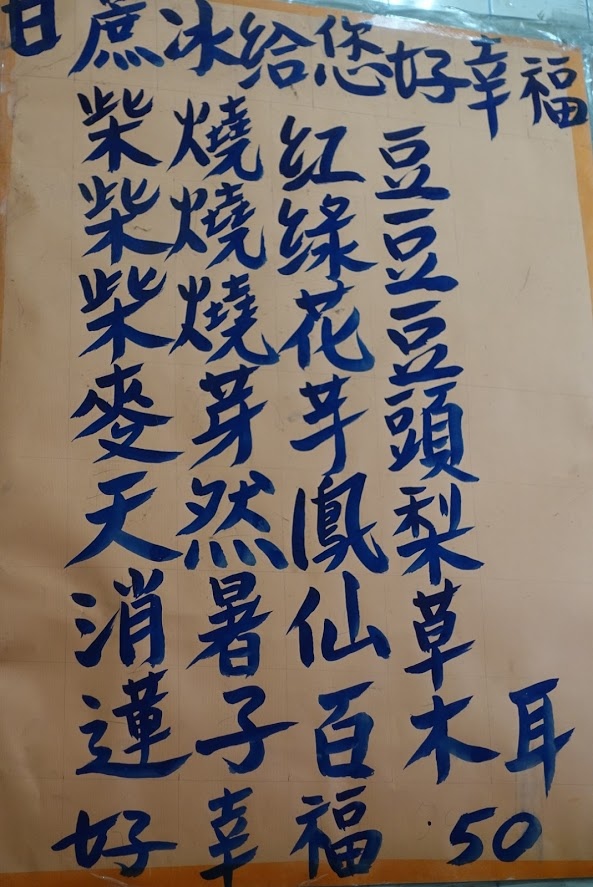 甘蔗冰給您好幸福
柴燒紅豆
柴燒綠豆
柴燒花豆
麥芽芋頭
天然鳳梨
消暑仙草
蓮子百木耳
好幸福·50